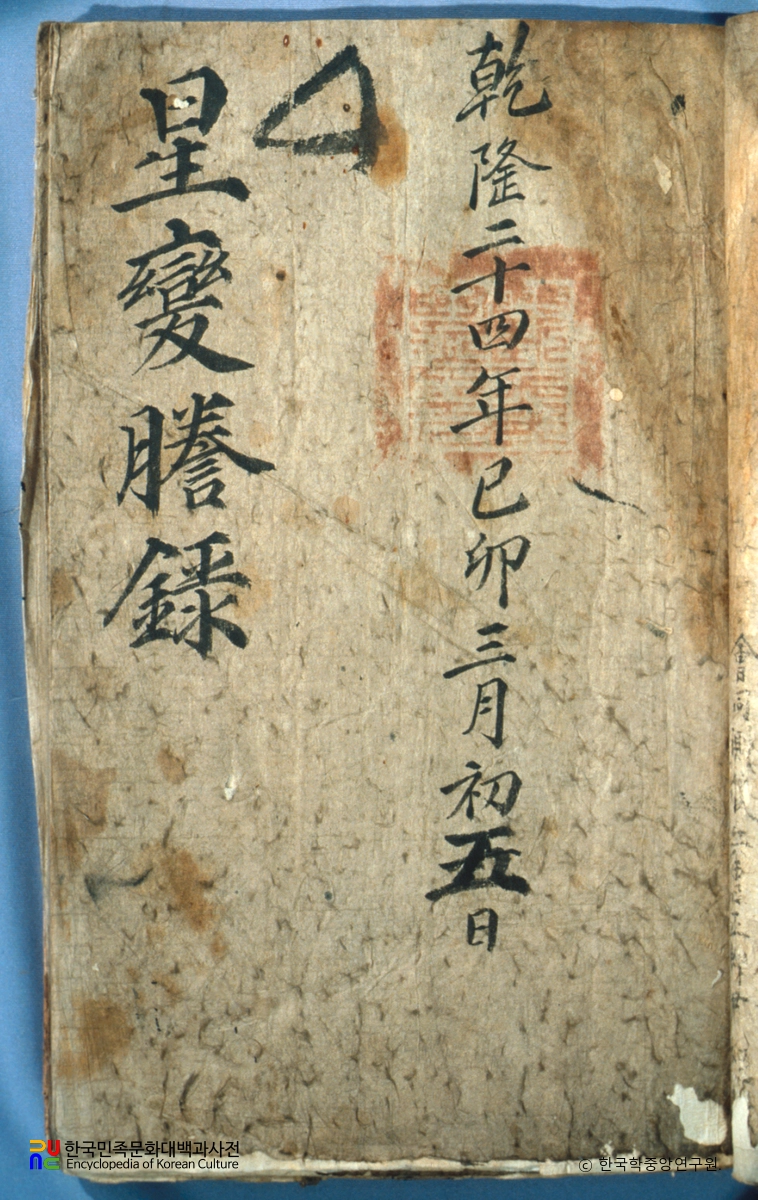 乾隆二十四年己卯三月初五日
星變謄錄
한국민족문화대백과사전
Encyclopedia of Korean Culture
© 한국학중앙연구원